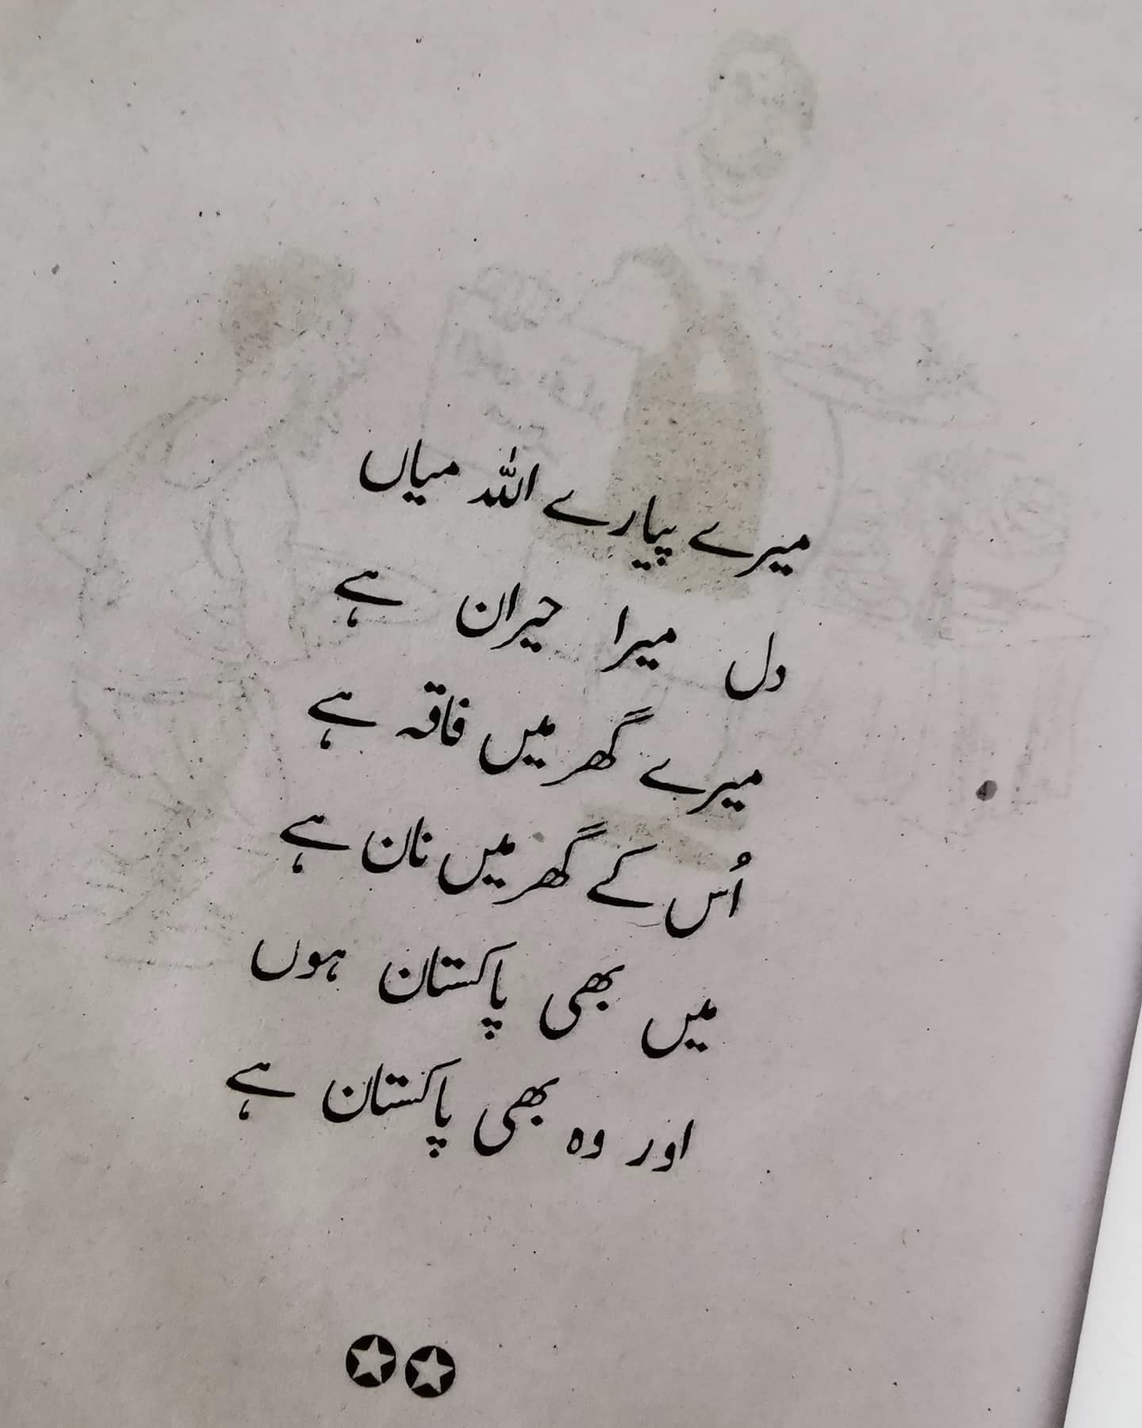 میرے پیارے اللہ میاں
دل میرا حیران ہے
میرے گھر میں فاقہ ہے
اُس کے گھر میں نان ہے
میں بھی پاکستان ہوں
اور وہ بھی پاکستان ہے